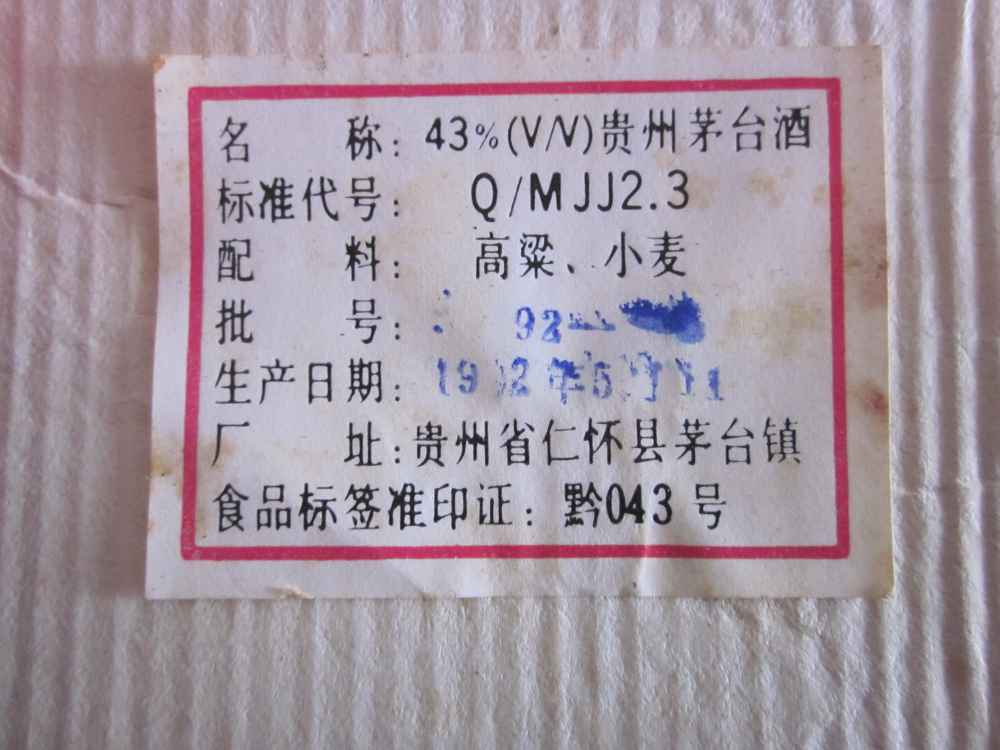 名 称: 43%(V/V)贵州茅台酒
标准代号: Q/MJJ2.3
配 料: 高粱、小麦
批 号: 92
生产日期: 1992年5月
厂 址: 贵州省仁怀县茅台镇
食品标签准印证: 黔043号